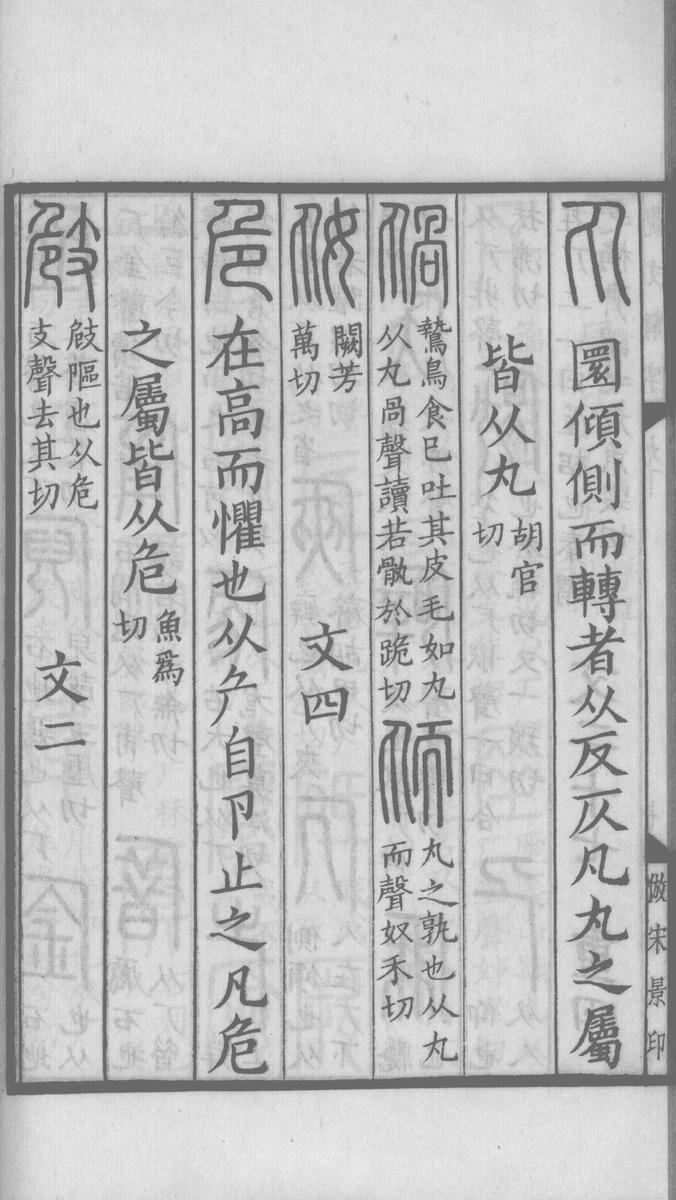 丸 圜傾側而轉者从反仄凡丸之屬
皆从丸 胡官
切
䯄 鷙鳥食已吐其皮毛如丸
从丸咼聲讀若骫於跪切
𠁽 丸之孰也从丸
而聲奴禾切
𠁾 闕芳
萬切
文四
危 在高而懼也从厃自卪止之凡危
之屬皆从危 魚爲
切
𠨜 㩻䧢也从危
支聲去其切
文二
倣宋景印